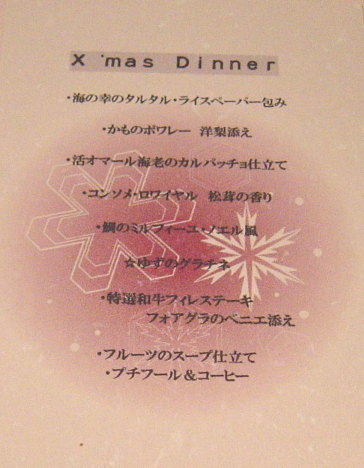 X 'mas Dinner
・海の幸のタルタル・ライスペーパー包み
・かものポワレー 洋梨添え
・活オマール海老のカルパッチョ仕立て
・コンソメ・ロワイヤル 松茸の香り
・鯛のミルフィーユ・ノエル風
☆ゆずのグラチネ
・特選和牛フィレステーキ
フォアグラのベニエ添え
・フルーツのスープ仕立て
・プチフール&コーヒー